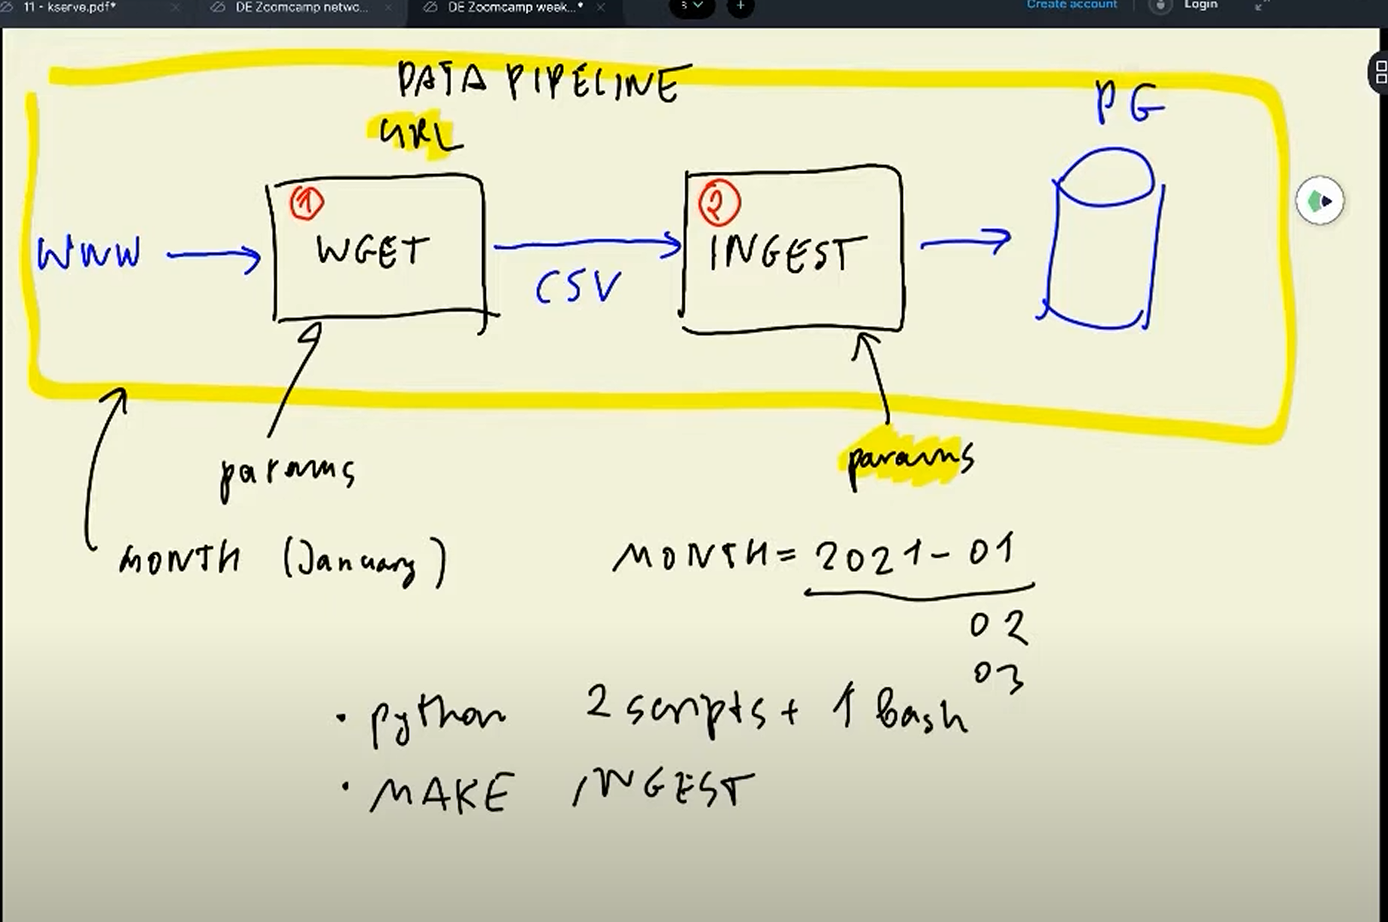 11 - kserve.pdf*
DE Zoomcamp netwo...
DE Zoomcamp week...*
3
+
Create account
Login
DATA PIPELINE
URL
PG
1
2
WWW
WGET
CSV
INGEST
params
params
MONTH (January)
MONTH = 2021-01
02
03
• python 2 scripts + 1 bash
• MAKE INGEST